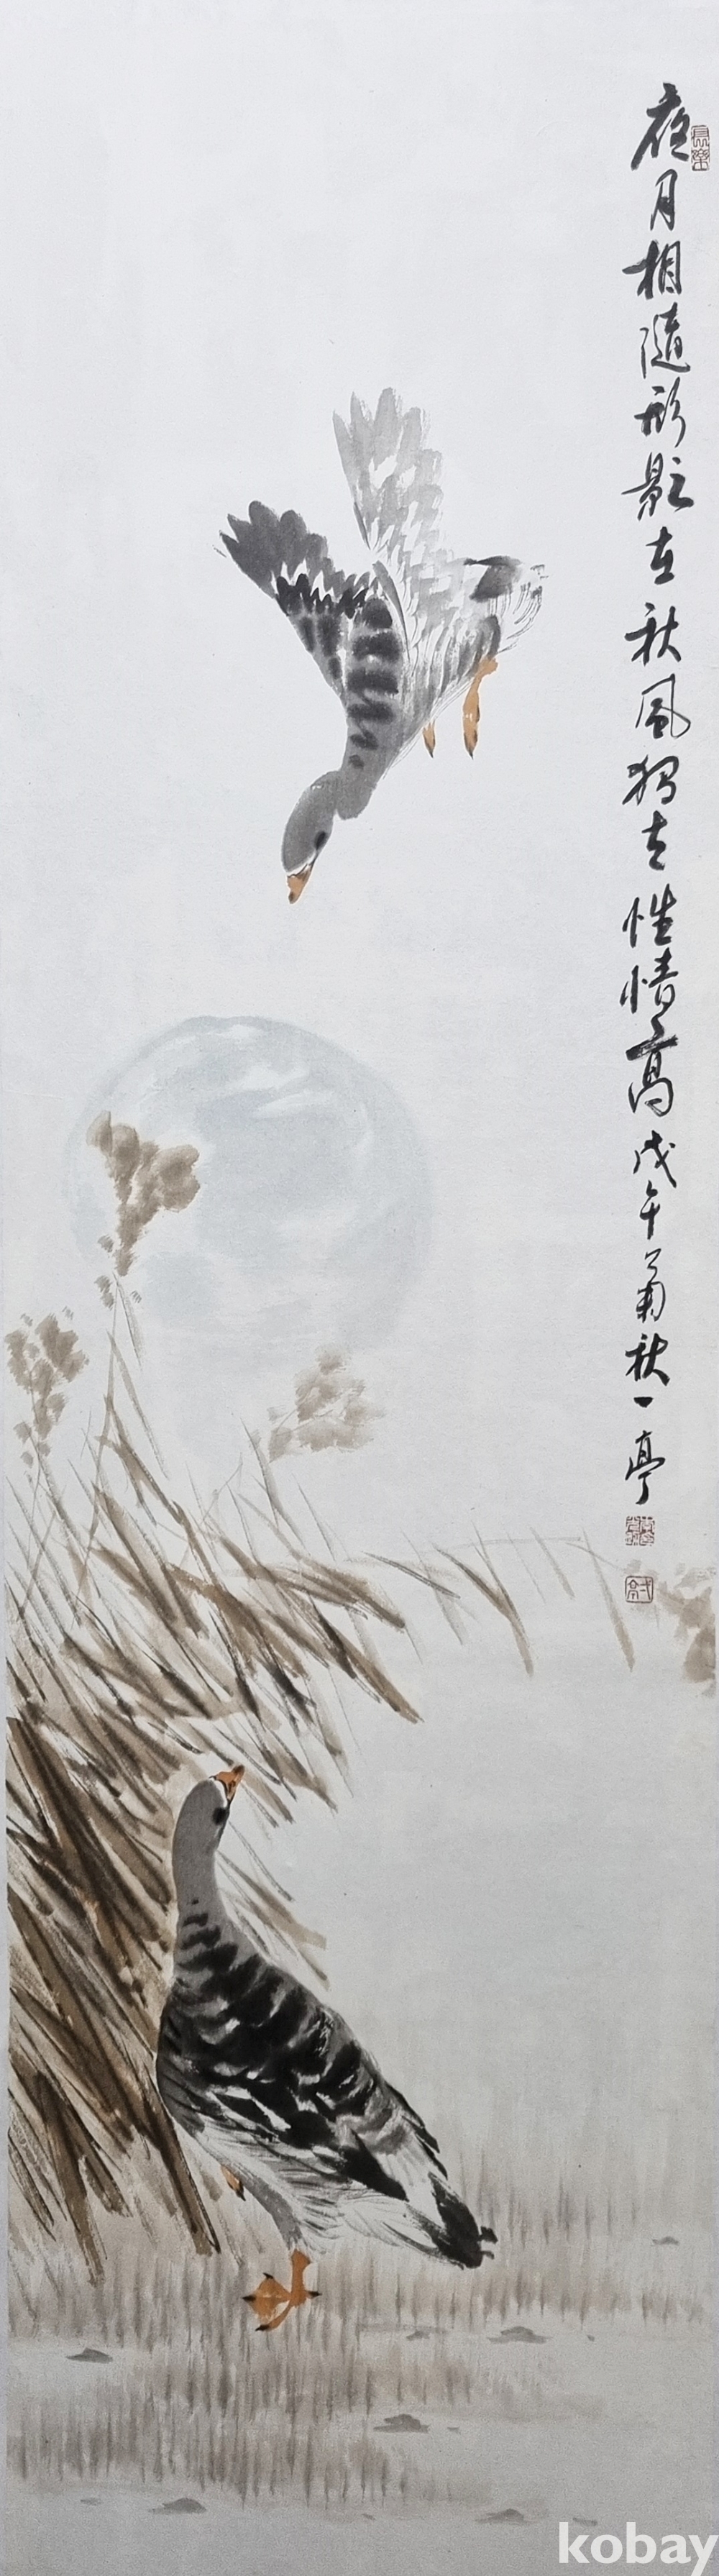 夜月相隨形影在秋風獨去性情高戊午菊秋一亭
kobay